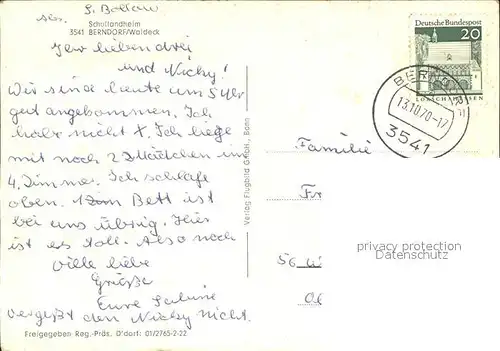 Abs. S. Bollow
Schullandheim
3541 BERNDORF/Waldeck
Ihr lieben drei
und Nicky!
Wir sind heute um 5 Uhr
gut angekommen. Ich
habe nicht +. Ich liege
mit noch 2 Mädchen im
4. Zimmer. Ich schlafe
oben. 1 Bett ist
bei uns übrig. Hier
ist es toll. Also noch
viele liebe
Grüße
Eure Sabine
vergeßt den Nicky nicht.
Freigegeben Reg.-Präs. D'dorf: 01/2765-2-22
Verlag Flugbild GmbH., Bonn
Deutsche Bundespost
20
LORSCH/HESSEN
13.10.70-17
3541
Familie
Fr
56 W
privacy protection
Datenschutz